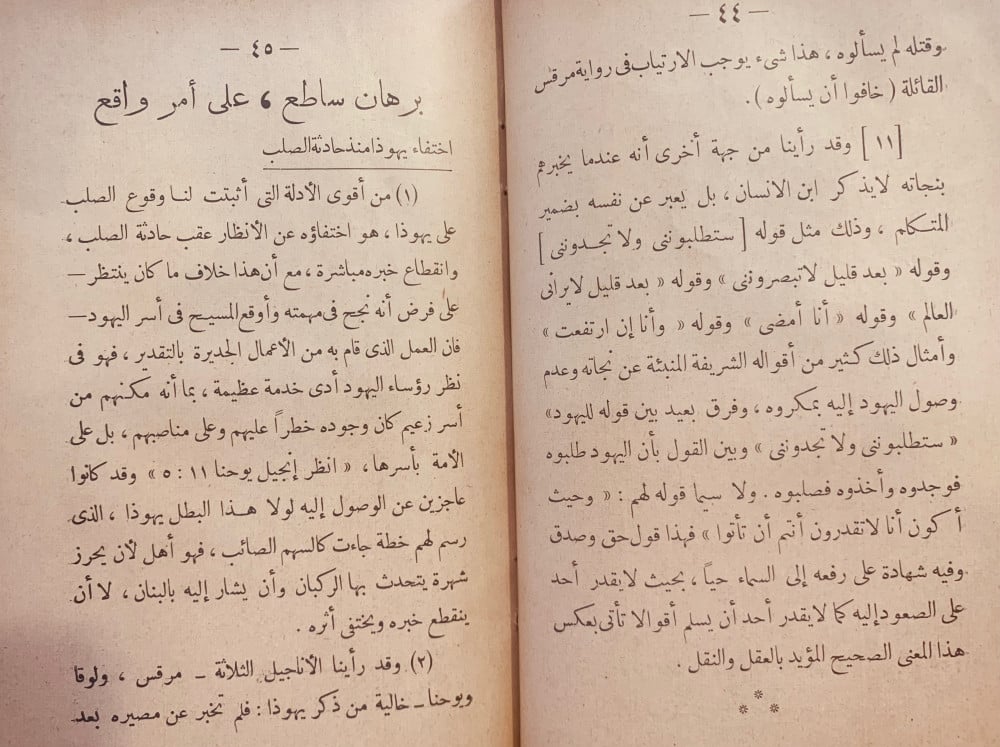 — ٤٤ —
وقتله لم يسألوه ، هذا شىء يوجب الارتياب فى رواية مرقس
القائلة ( خافوا أن يسألوه ) .
[ ١١ ] وقد رأينا من جهة أخرى أنه عندما يخبرهم
بنجاته لايذكر ابن الانسان ، بل يعبر عن نفسه بضمير
المتكلم ، وذلك مثل قوله [ ستطلبوننى ولا تجدوننى ]
وقوله « بعد قليل لاتبصروننى » وقوله « بعد قليل لايرانى
العالم » وقوله « أنا أمضى » وقوله « وأنا إن ارتفعت »
وأمثال ذلك كثير من أقواله الشريفة المنبئة عن نجاته وعدم
وصول اليهود إليه بمكروه ، وفرق بعيد بين قوله لليهود»
« ستطلبوننى ولا تجدوننى » وبين القول بأن اليهود طلبوه
فوجدوه وأخذوه فصلبوه . ولا سيما قوله لهم : « وحيث
أكون أنا لاتقدرون أنتم أن تأتوا » فهذا قول حق وصدق
وفيه شهادة على رفعه إلى السماء حياً ، بحيث لايقدر أحد
على الصعود إليه كما لايقدر أحد أن يسلم أقوالا تأتى بعكس
هذا المعنى الصحيح المؤيد بالعقل والنقل .
* * *
— ٤٥ —
برهان ساطع ، على أمر واقع
اختفاء يهوذا منذ حادثة الصلب
(١) من أقوى الأدلة التى أثبتت لنا وقوع الصلب
على يهوذا ، هو اختفاؤه عن الأنظار عقب حادثة الصلب ،
وانقطاع خبره مباشرة ، مع أن هذا خلاف ما كان ينتظر —
على فرض أنه نجح فى مهمته وأوقع المسيح فى أسر اليهود —
فان العمل الذى قام به من الأعمال الجديرة بالتقدير ، فهو فى
نظر رؤساء اليهود أدى خدمة عظيمة ، بما أنه مكنهم من
أسر زعيم كان وجوده خطراً عليهم وعلى مناصبهم ، بل على
الأمة بأسرها ، « انظر إنجيل يوحنا ١١ : ٥ » وقد كانوا
عاجزين عن الوصول إليه لولا هذا البطل يهوذا ، الذى
رسم لهم خطة جاءت كالسهم الصائب ، فهو أهل لأن يحرز
شهرة يتحدث بها الركبان وأن يشار إليه بالبنان ، لا أن
ينقطع خبره ويختفى أثره .
(٢) وقد رأينا الأناجيل الثلاثة — مرقس ، ولوقا
ويوحنا — خالية من ذكر يهوذا : فلم تخبر عن مصيره بعد